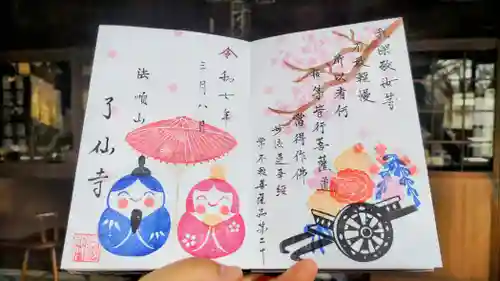 我深敬汝等
不敢軽慢
所以者何
汝等皆行菩薩道
當得作佛
妙法蓮華経
常不軽菩薩品第二十
令和七年
三月八日
法順山
了仙寺